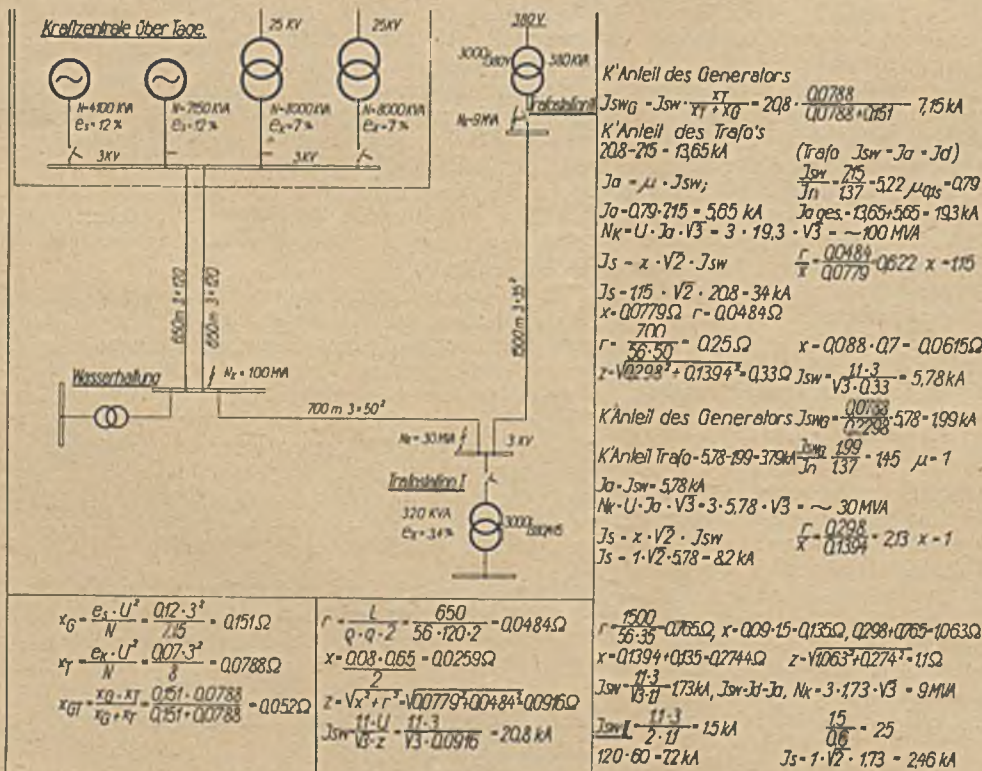 Kraftzentrale über Tage.
25 KV
25KV
380V
3000/380V 380KVA
N=4100 KVA
es=12 %
N=7150 KVA
es=12%
N=8000KVA
ex=7%
N=8000 KVA
ex=7%
Nk=9MVA
Trafostation II
3KV
3KV
650m 3×120
650m 3×120
1500m 3×35²
Wasserhaltung
Nk = 100 MVA
700m 3×50²
Nk=30MVA
3 KV
Trafostation I
320 KVA
ex=3,4%
K'Anteil des Generators
JswG = Jsw · xT / (xT + xG) = 20,8 · 0,0788 / (0,0788+0,151) = 7,15 kA
K'Anteil des Trafo's
20,8-7,15 = 13,65 kA (Trafo Jsw = Ja = Jd)
Ja = μ · Jsw; Jsw/Jn = 7,15/1,37 = 5,22 μ0,1s = 0,79
Ja=0,79·7,15 = 5,65 kA Ja ges.=13,65+5,65 = 19,3 kA
NK = U · Ja · √3 = 3 · 19,3 · √3 = ~100 MVA
Js = x · √2 · Jsw r/x = 0,0484/0,0779 = 0,622 x = 1,15
Js = 1,15 · √2 · 20,8 = 34 kA
x = 0,0779Ω r = 0,0484Ω
r = 700/(56·50) = 0,25 Ω x = 0,088·0,7 = 0,0615Ω
z=√0,298²+0,1394² = 0,33Ω Jsw = 1,1·3/(√3·0,33) = 5,78kA
K'Anteil des Generators JswG = 0,0788/0,2298 · 5,78 = 1,99 kA
K'Anteil Trafo = 5,78-1,99 = 3,79kA JswG/Jn = 1,99/1,37 = 1,45 μ = 1
Ja=Jsw= 5,78 kA
Nk=U·Ja·√3 = 3·5,78·√3 = ~ 30 MVA
Js = x · √2 · Jsw r/x = 0,298/0,1394 = 2,13 x = 1
Js = 1·√2·5,78 = 8,2 kA
xG = es · U²/N = 0,12 · 3²/7,15 = 0,151 Ω
xT = eK · U²/N = 0,07·3²/8 = 0,0788Ω
xGT = xG · xT/(xG + xT) = 0,151 · 0,0788/(0,151+0,0788) = 0,052Ω
r = L/(ϱ·q·2) = 650/(56·120·2) = 0,0484Ω
x = 0,08·0,65/2 = 0,0259Ω
z = √x²+r² = √0,0779²+0,0484² 0,0916Ω
Jsw = 1,1·U/(√3·z) = 1,1·3/(√3·0,0916) = 20,8 kA
r = 1500/(56·35) = 0,765Ω, x = 0,09·1,5 = 0,135Ω, 0,298+0,765 = 1,063Ω
x = 0,1394+0,135 = 0,2744Ω z = √1,063²+0,274² = 1,1Ω
Jsw = 1,1·3/(√3·1,1) = 1,73kA, Jsw=Jd=Ja, Nk = 3·1,73·√3 = 9MVA
1,1·3/(2·1,1) = 1,5 kA 1,5/0,6 = 2,5
120·60 = 7,2 kA Js = 1·√2·1,73 = 2,46 kA